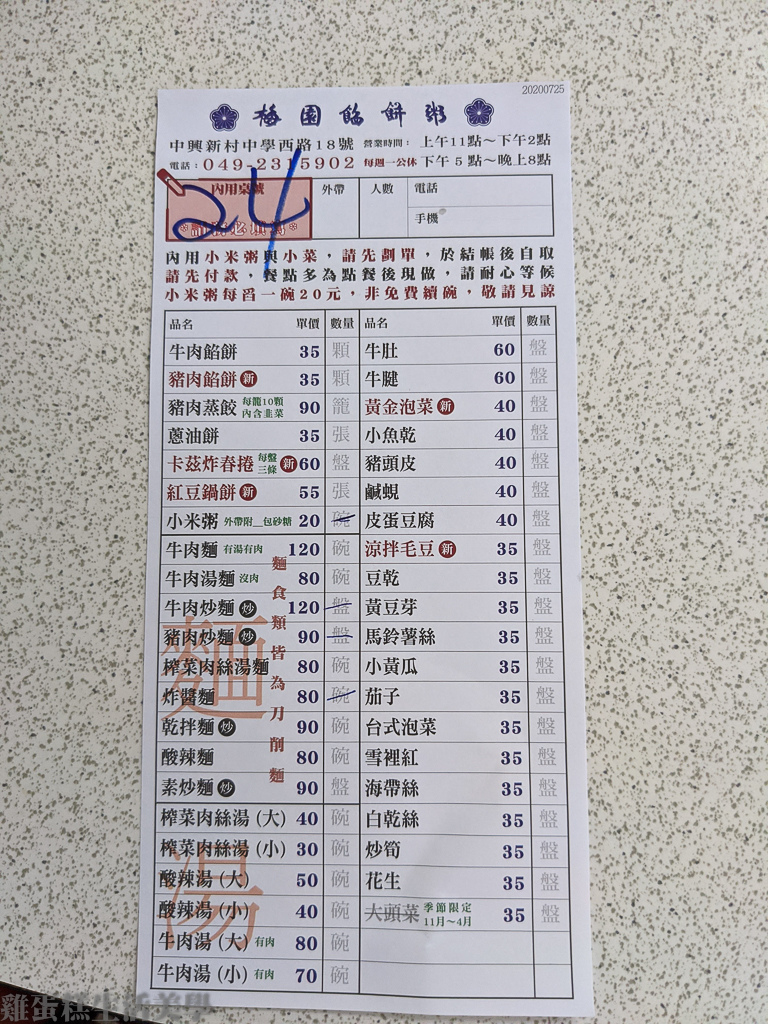 20200725
梅園餡餅粥
中興新村中學西路18號 營業時間： 上午11點～下午2點
電話：049-2315902 每週一公休 下午5點～晚上8點
內用桌號 外帶 人數 電話
24
手機
內用小米粥與小菜，請先劃單，於結帳後自取
請先付款，餐點多為點餐後現做，請耐心等候
小米粥每舀一碗20元，非免費續碗，敬請見諒
品名 單價 數量 品名 單價 數量
牛肉餡餅 35 顆 牛肚 60 盤
豬肉餡餅 新 35 顆 牛腱 60 盤
豬肉蒸餃 每籠10顆 內含韭菜 90 籠 黃金泡菜 新 40 盤
蔥油餅 35 張 小魚乾 40 盤
卡茲炸春捲 每盤三條 新 60 盤 豬頭皮 40 盤
紅豆鍋餅 新 55 張 鹹蜆 40 盤
小米粥 外帶附__包砂糖 20 碗 皮蛋豆腐 40 盤
牛肉麵 有湯有肉 120 碗 涼拌毛豆 新 35 盤
牛肉湯麵 沒肉 80 碗 豆乾 35 盤
牛肉炒麵 炒 120 盤 黃豆芽 35 盤
豬肉炒麵 炒 90 盤 馬鈴薯絲 35 盤
榨菜肉絲湯麵 80 碗 小黃瓜 35 盤
炸醬麵 80 碗 茄子 35 盤
乾拌麵 炒 90 碗 台式泡菜 35 盤
酸辣麵 80 碗 雪裡紅 35 盤
素炒麵 炒 90 盤 海帶絲 35 盤
麵
麵食類皆為刀削麵
榨菜肉絲湯（大） 40 碗 白乾絲 35 盤
榨菜肉絲湯（小） 30 碗 炒筍 35 盤
酸辣湯（大） 50 碗 花生 35 盤
酸辣湯（小） 40 碗 大頭菜 季節限定 11月～4月 35 盤
牛肉湯（大） 有肉 80 碗
牛肉湯（小） 有肉 70 碗
湯
雞蛋糕生活美學